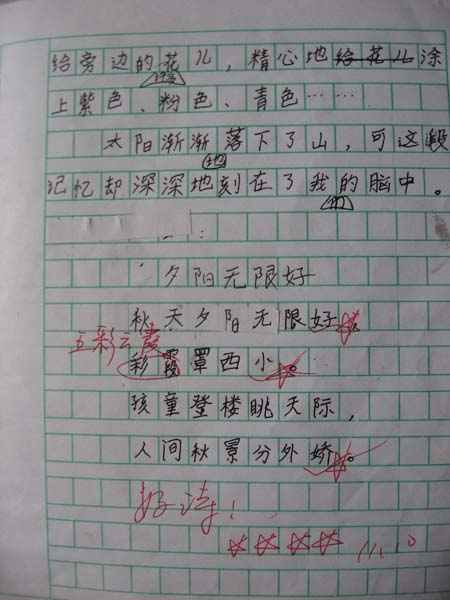 给旁边的花儿，精心地给花儿涂
上紫色、粉色、青色……
太阳渐渐落下了山，可这段
地
记忆却深深地刻在了我的脑中。
们
夕阳无限好
秋天夕阳无限好。
五彩云霞
彩霞罩西小。
孩童登楼眺天际，
人间秋景分外娇。
好诗！
11.10